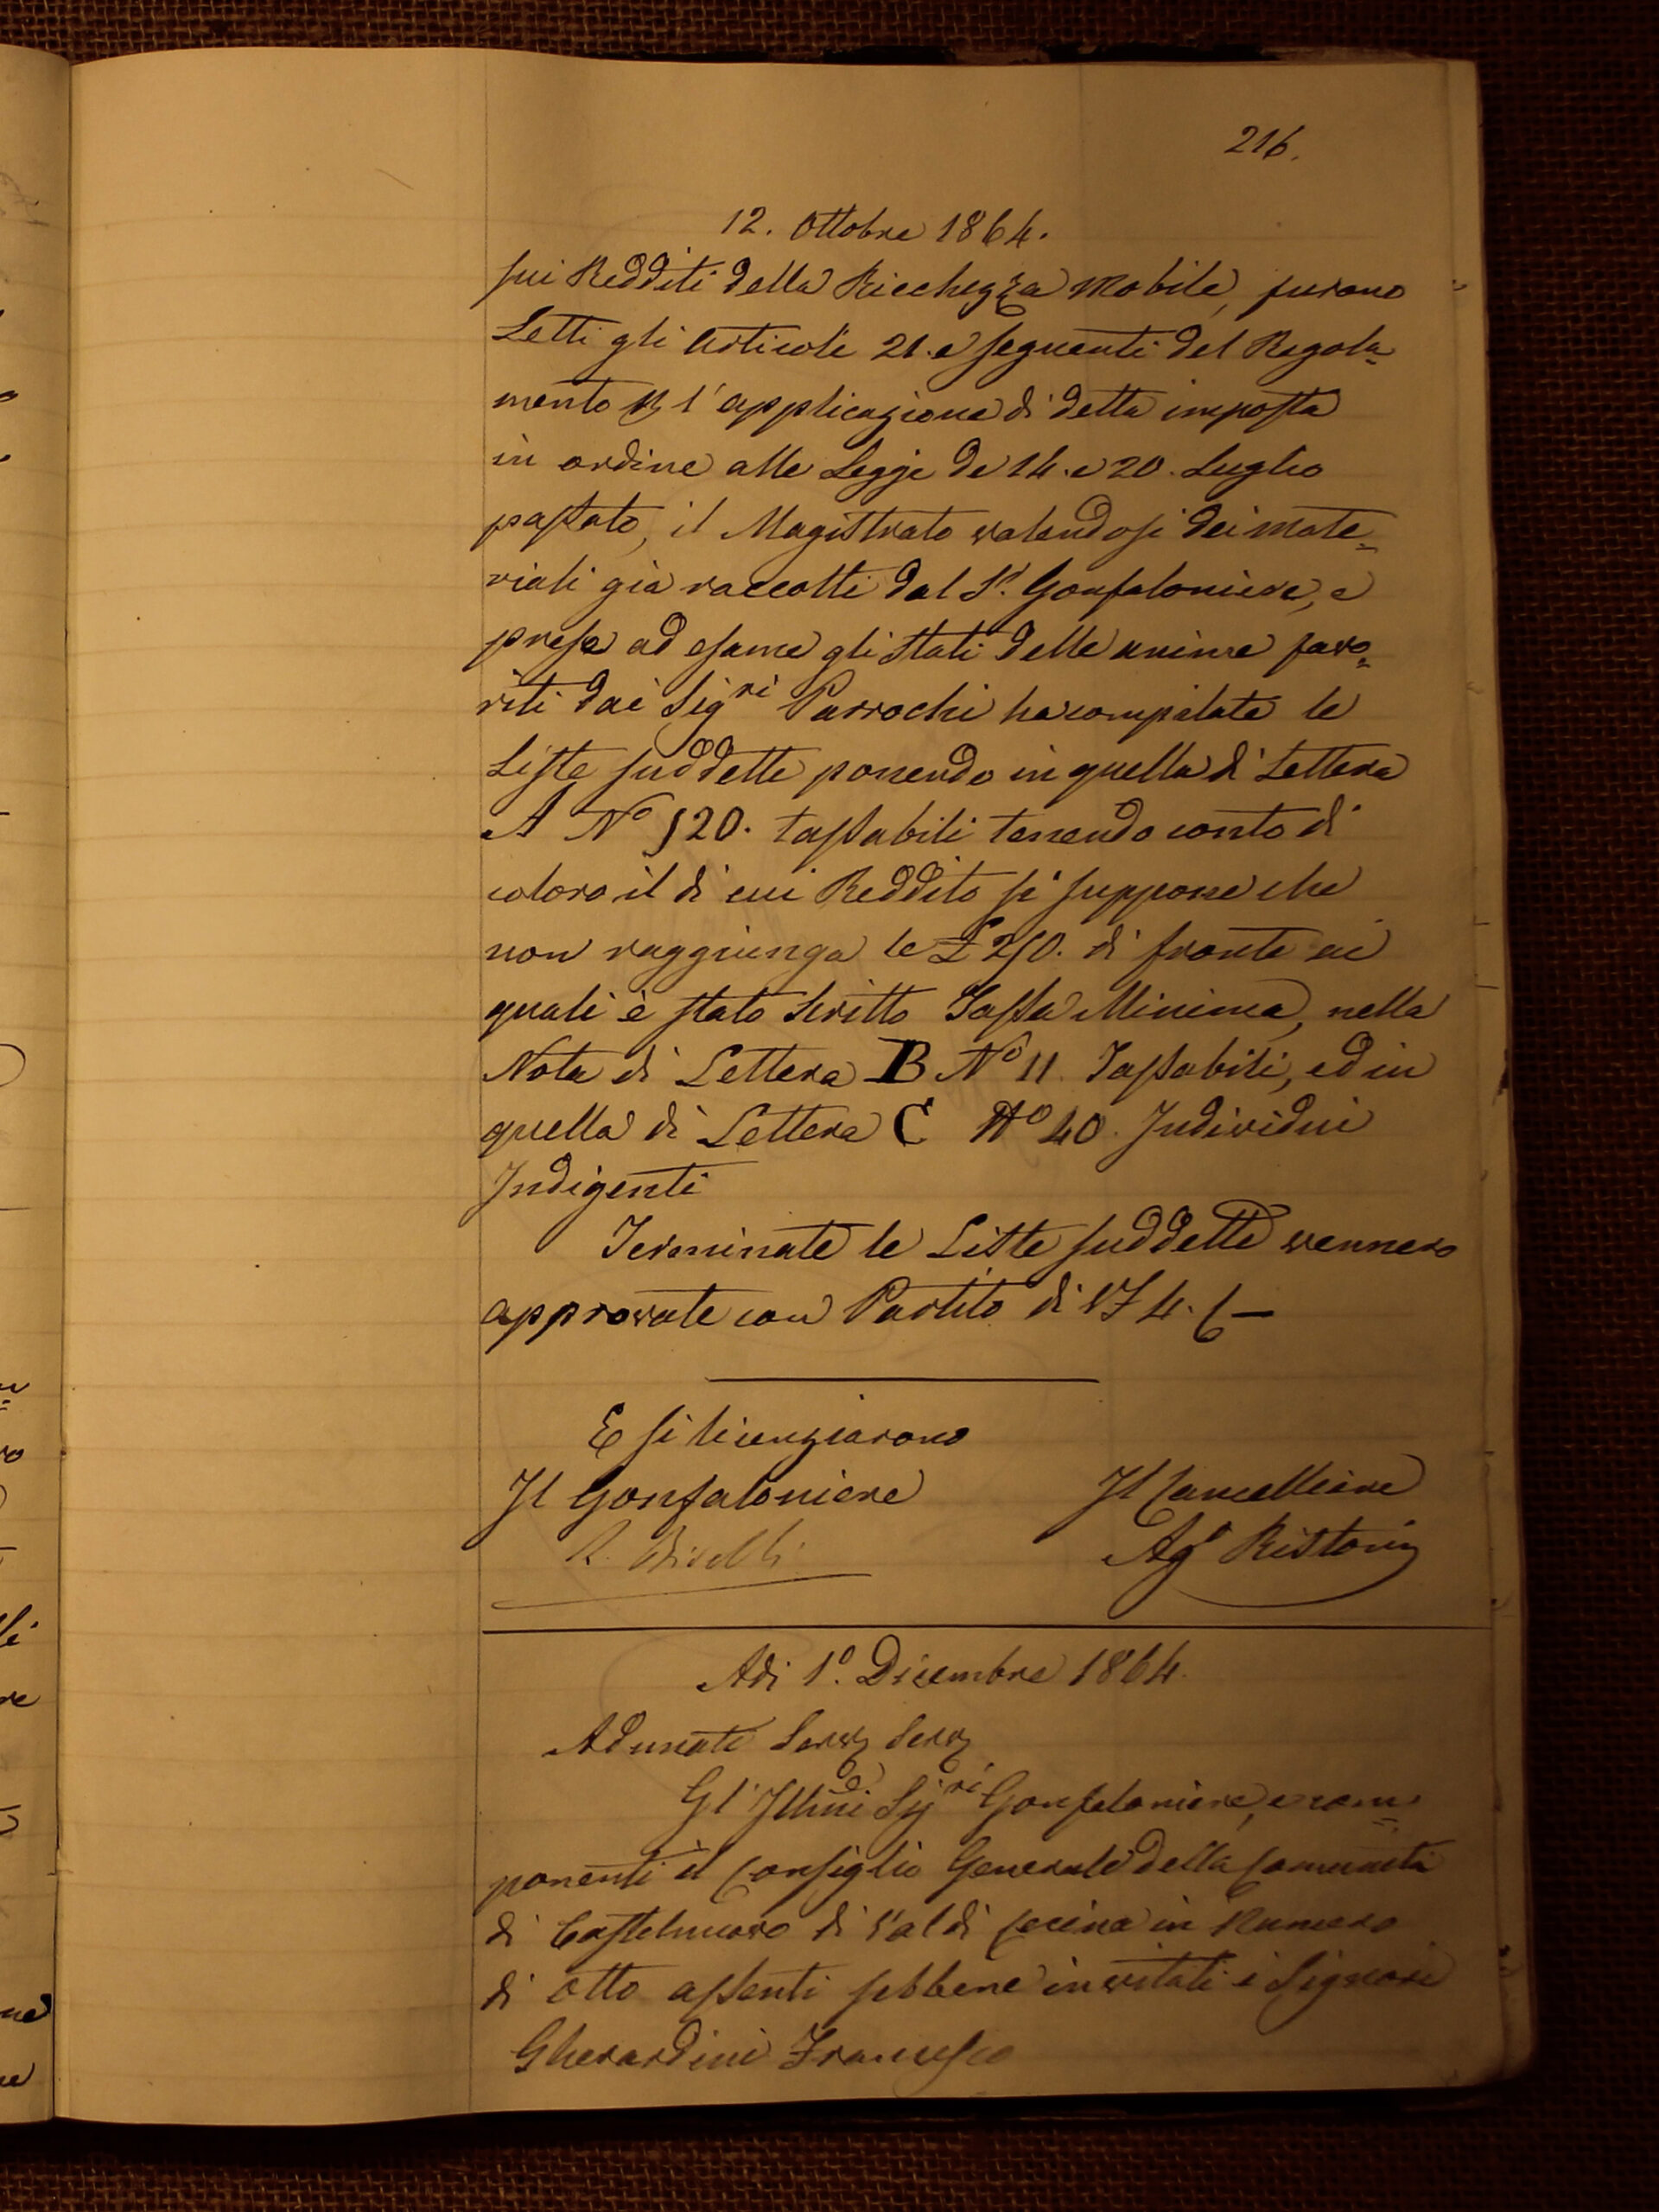 216.
12. Ottobre 1864.
sui Redditi della Ricchezza Mobile, furono
Letti gli Articoli 21. e seguenti del Regola=
mento p l'applicazione di detta imposta
in ordine alle Legge de 14. e 20. Luglio
passato, il Magistrato valendosi dei mate=
riali già raccolti dal S.r Gonfaloniere, e
prese ad esame gli stati delle anime favo=
riti dai Sigri Parrochi ha compilate le
Liste suddette ponendo in quella di Lettera
A No 520. tassabili tenendo conto di
coloro il di cui Reddito si suppone che
non raggiunga le £ 250. di fronte ai
quali è stato scritto Tassa Minima, nella
Nota di Lettera B No 11. Tassabili, ed in
quella di Lettera C No 40. Individui
Indigenti
Terminate le Liste suddette vennero
approvate con Partito di VF 4. C —
E si licenziarono
Il Gonfaloniere
Il Cancelliere
Ago Ristorini
Adi 1o. Dicembre 1864.
Adunati Serv Serv
Gl' Illmi Sigri Gonfaloniere, e com=
ponenti il Consiglio Generale della Comunità
di Castelnuovo di Val di Cecina in Numero
di Otto assenti sebbene invitati i Signori
Gherardini Francesco